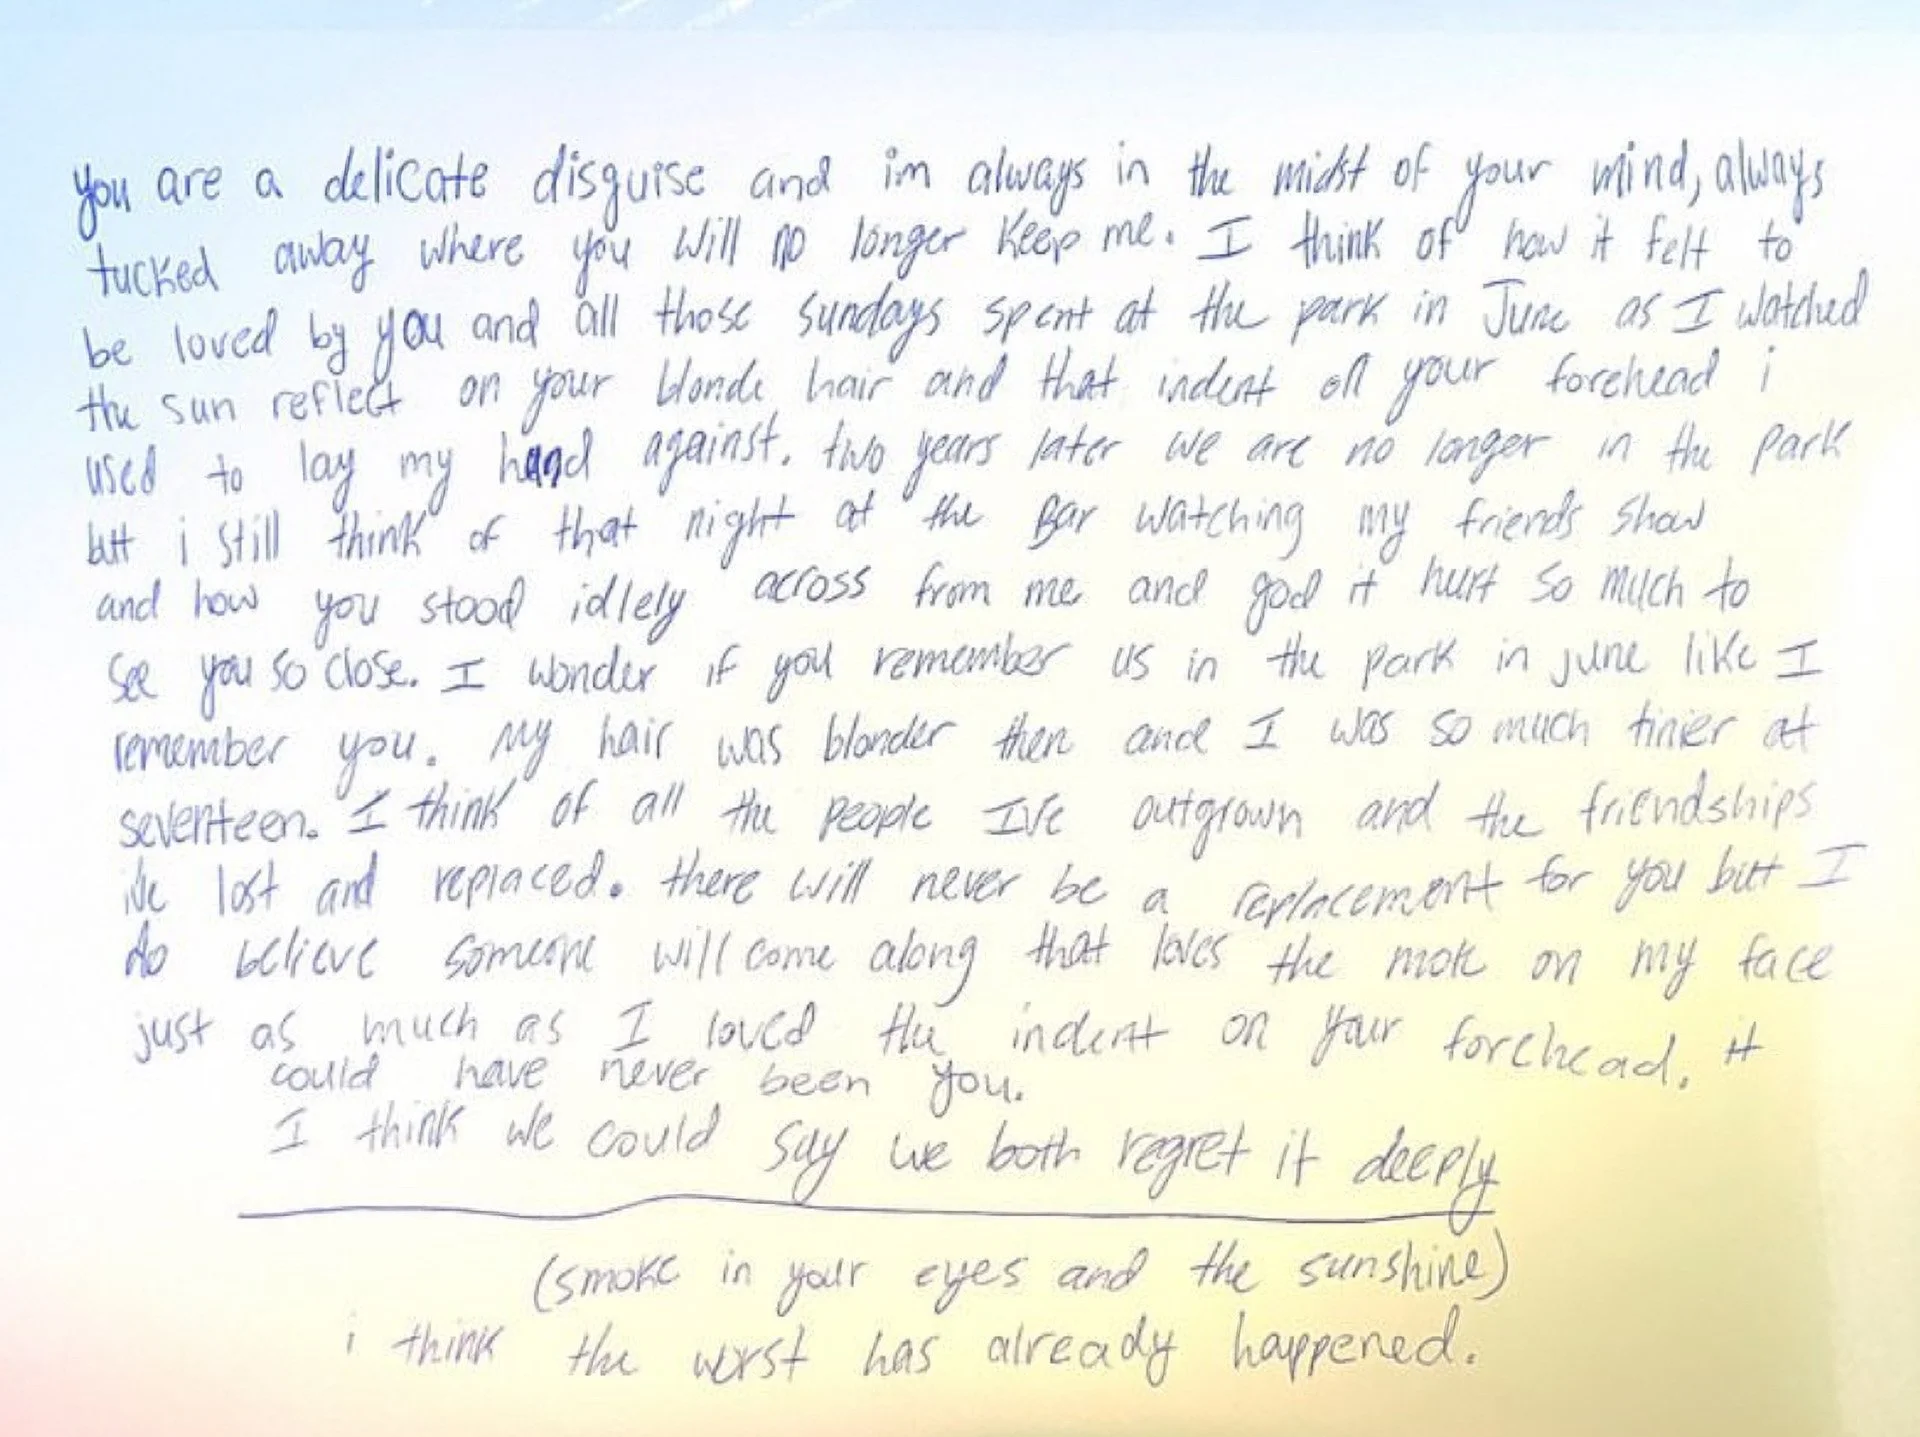 you are a delicate disguise and im always in the midst of your mind, always
tucked away where you will no longer keep me. I think of how it felt to
be loved by you and all those sundays spent at the park in June as I watched
the sun reflect on your blonde hair and that indent on your forehead i
used to lay my hand against. two years later we are no longer in the park
but i still think of that night at the Bar watching my friends show
and how you stood idlely across from me and god it hurt so much to
see you so close. I wonder if you remember us in the park in june like I
remember you. my hair was blonder then and I was so much tinier at
seventeen. I think of all the people I've outgrown and the friendships
i've lost and replaced. there will never be a replacement for you but I
do believe someone will come along that loves the mole on my face
just as much as I loved the indent on your forehead. it
could have never been you.
I think we could say we both regret it deeply
(smoke in your eyes and the sunshine)
i think the worst has already happened.